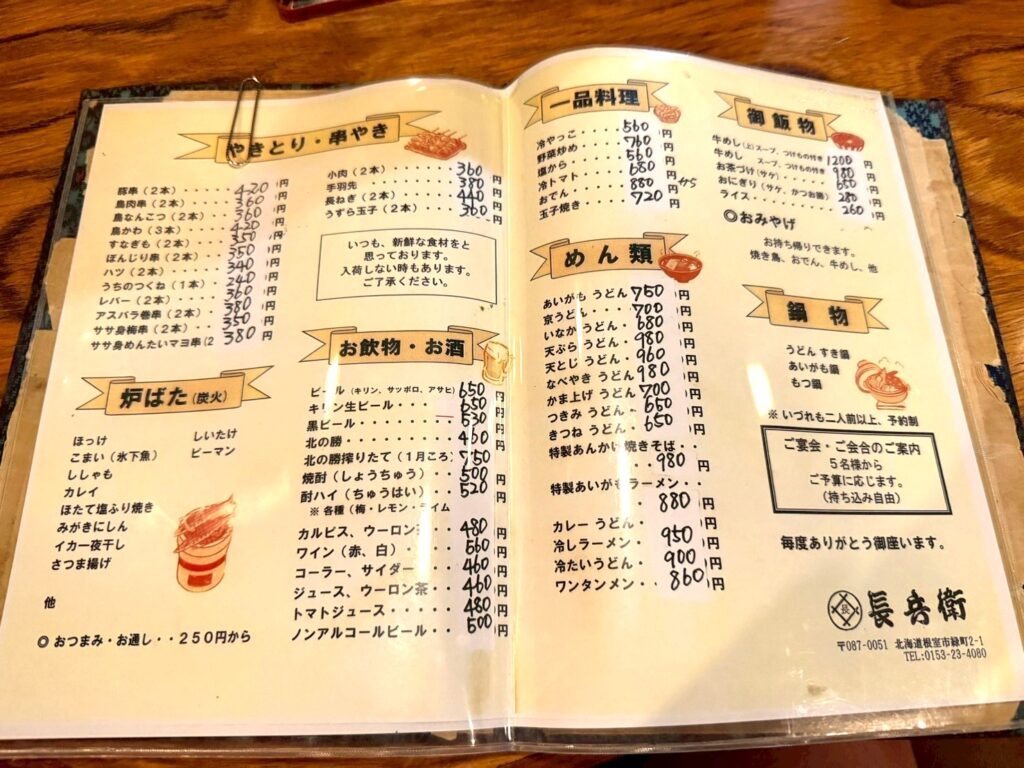 やきとり・串やき
豚串（２本）・・・・・ 420円
鳥肉串（２本）・・・・ 360円
鳥なんこつ（２本）・・ 360円
鳥かわ（３本）・・・・ 420円
すなぎも（２本）・・・ 350円
ぼんじり串（２本）・・ 350円
ハツ（２本）・・・・・ 340円
うちのつくね（１本）・ 240円
レバー（２本）・・・・ 360円
アスパラ巻串（２本）・ 380円
ササ身梅串（２本）・・ 350円
ササ身めんたいマヨ串(２ 380円
小肉（２本）・・・・ 360円
手羽先・・・・・ 380円
長ねぎ（２本）・・・ 440円
うずら玉子（２本）・ 360円
いつも、新鮮な食材をと
思っております。
入荷しない時もあります。
ご了承ください。
炉ばた(炭火)
ほっけ
こまい（氷下魚）
ししゃも
カレイ
ほたて塩ふり焼き
みがきにしん
イカ一夜干し
さつま揚げ
しいたけ
ピーマン
他
◎ おつまみ・お通し・・２５０円から
お飲物・お酒
ビール（キリン、サッポロ、アサヒ）650円
キリン生ビール・・・ 650円
黒ビール・・・・・ 530円
北の勝・・・・・・ 460円
北の勝搾りたて（１月ころ）750円
焼酎（しょうちゅう）・・ 500円
酎ハイ（ちゅうはい）・・ 520円
※ 各種（梅・レモン・ライム
カルピス、ウーロン茶・・ 480円
ワイン（赤、白）・・・ 560円
コーラー、サイダー・・ 460円
ジュース、ウーロン茶・・ 460円
トマトジュース・・・・・ 480円
ノンアルコールビール・・ 500円
一品料理
冷やっこ・・・・ 560円
野菜炒め・・・・ 760円
塩から・・・・・ 560円
冷トマト・・・・ 680円
おでん・・・・・ 880円から
玉子焼き・・・・ 720円
めん類
あいがも うどん 750円
京うどん・・・ 700円
いなか うどん・ 680円
天ぷら うどん・ 980円
天とじ うどん・ 960円
なべやき うどん 980円
かま上げ うどん 700円
つきみ うどん・ 650円
きつね うどん・ 650円
特製あんかけ焼きそば・・
・・ 980円
特製あいがもラーメン・・
・・ 880円
カレー うどん・
冷しラーメン・ 950円
冷たいうどん・ 900円
ワンタンメン・・ 860円
御飯物
牛めし(上)スープ、つけもの付き 1200円
牛めし　スープ、つけもの付き 980円
お茶づけ（サケ）・・・・ 650円
おにぎり（サケ、かつお節） 280円
ライス・・・・・・ 260円
◎おみやげ
お持ち帰りできます。
焼き鳥、おでん、牛めし、他
鍋 物
うどん すき鍋
あいがも鍋
もつ鍋
※ いづれも二人前以上、予約制
ご宴会・ご会合のご案内
５名様から
ご予算に応じます。
（持ち込み自由）
毎度ありがとう御座います。
長
長兵衛
〒087-0051 北海道根室市緑町2-1
TEL:0153-23-4080